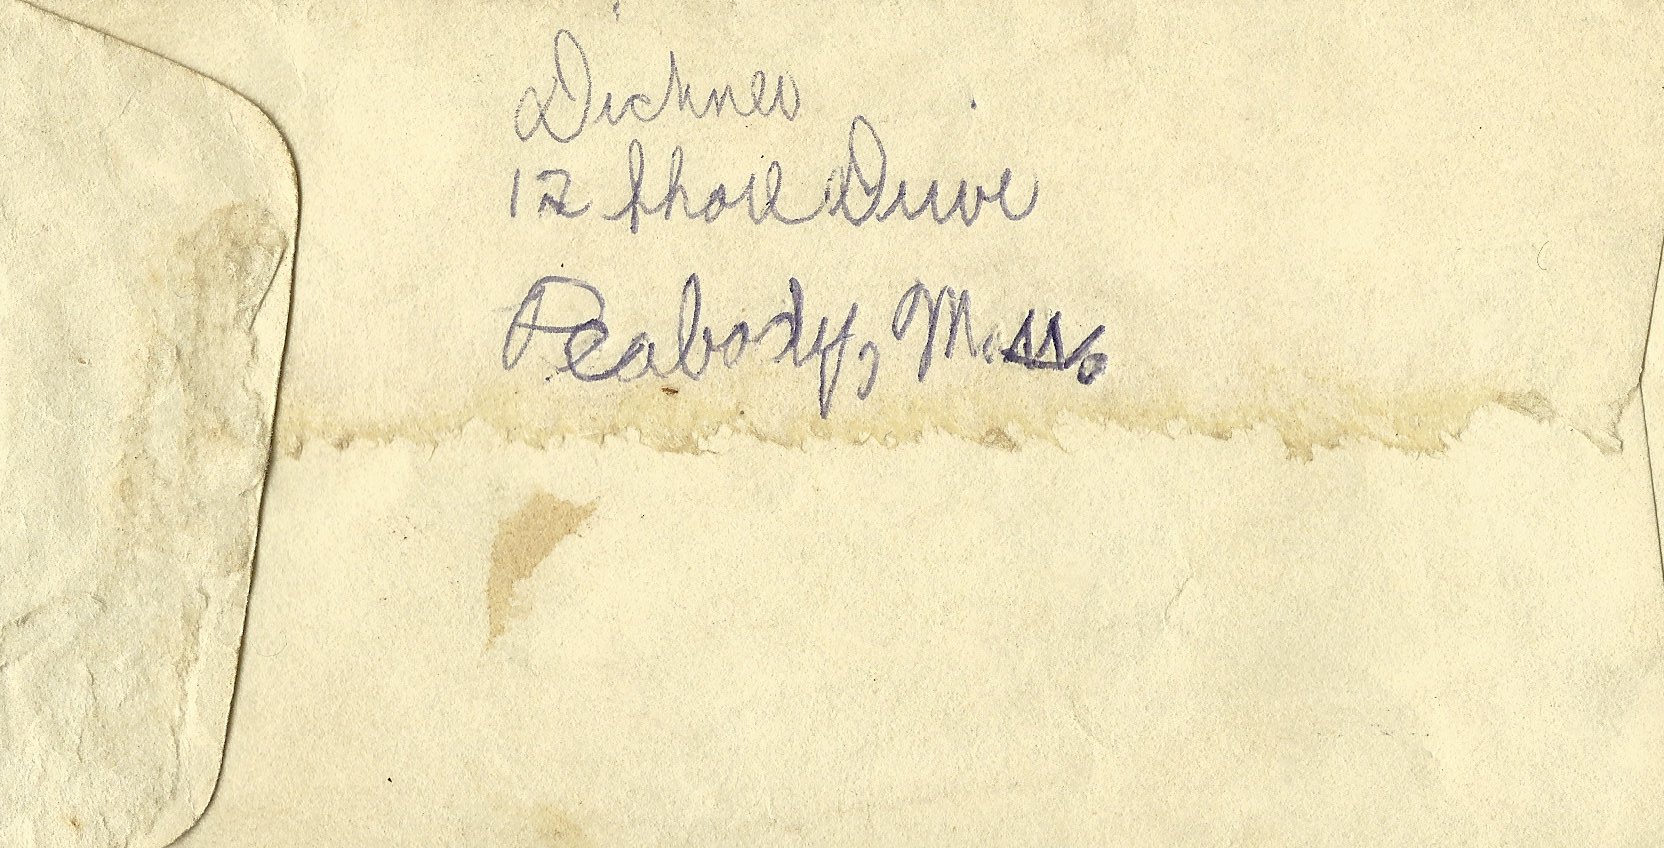 Dickner
12 Shore Drive
Peabody, Mass.